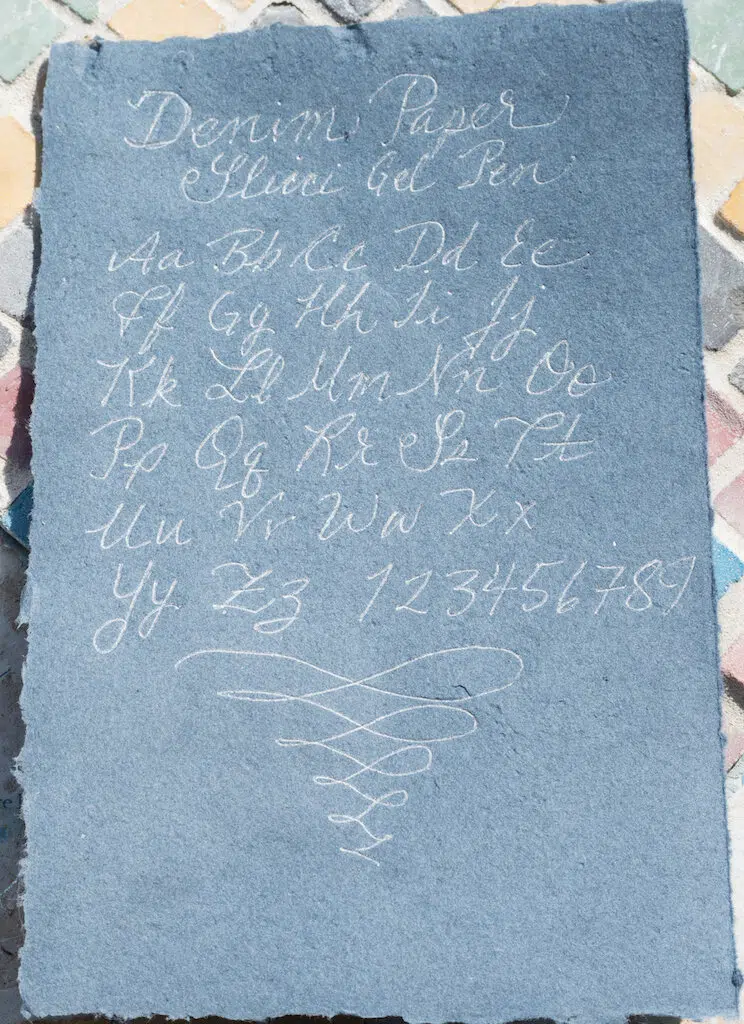 Denim Paper
Slicci Gel Pen
Aa Bb Cc Dd Ee
Ff Gg Hh Ii Jj
Kk Ll Mm Nn Oo
Pp Qq Rr Ss Tt
Uu Vv Ww Xx
Yy Zz 123456789